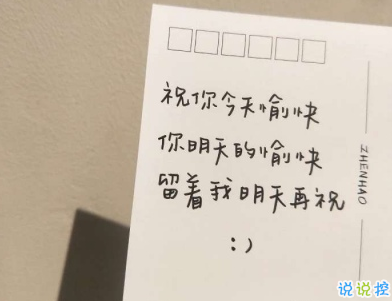 祝你今天愉快
你明天的愉快
留着我明天再祝
:)
ZHENHAO
说说控